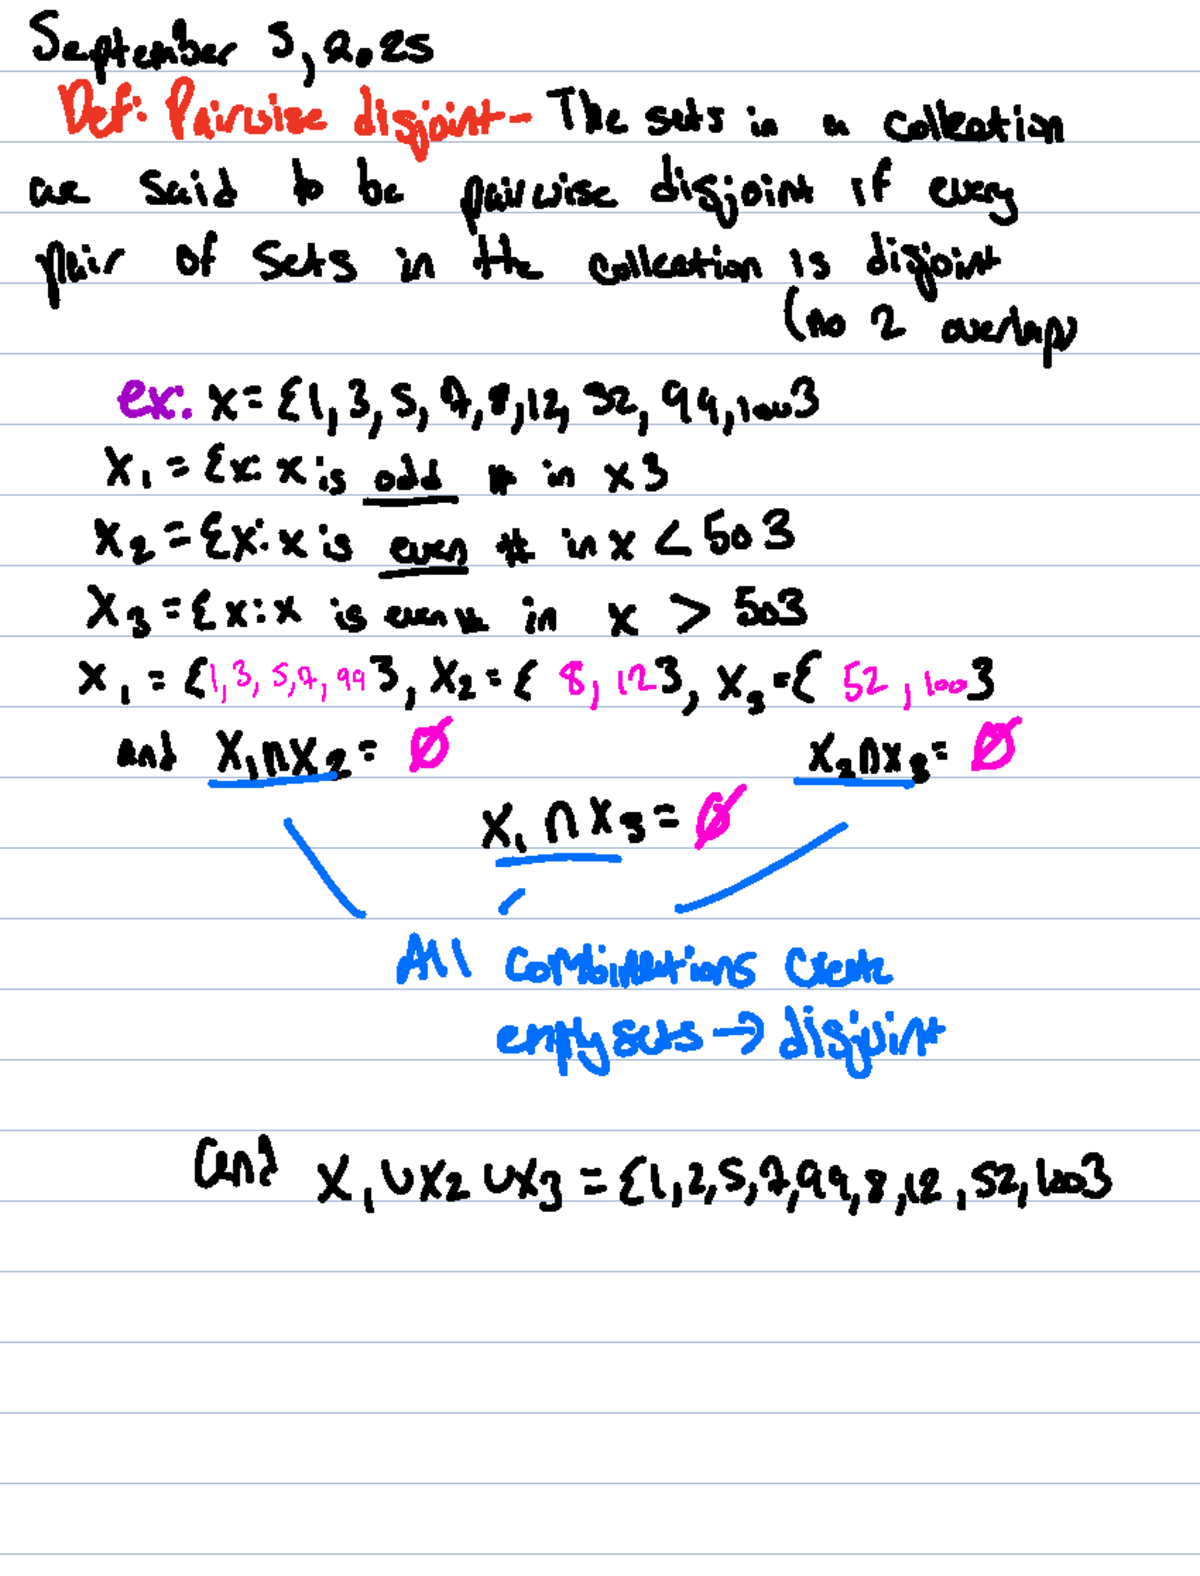 September 5, 2025
Def: Pairwise disjoint- The sets in a collection
are said to be pairwise disjoint if every
pair of sets in the collection is disjoint
(no 2 overlap)
ex: x = {1, 3, 5, 7, 8, 12, 52, 99, 100}
X₁ = {x: x is odd # in x}
X₂ = {x: x is even # in x < 50}
X₃ = {x: x is even # in x > 50}
X₁ = {1, 3, 5, 7, 99}, X₂ = { 8, 12}, X₃ = { 52, 100}
and X₁∩X₂ = ∅ X₂∩X₃ = ∅
X₁ ∩ X₃ = ∅
All combinations create
empty sets → disjoint
and X₁ ∪ X₂ ∪ X₃ = {1, 2, 5, 7, 99, 8, 12, 52, 100}